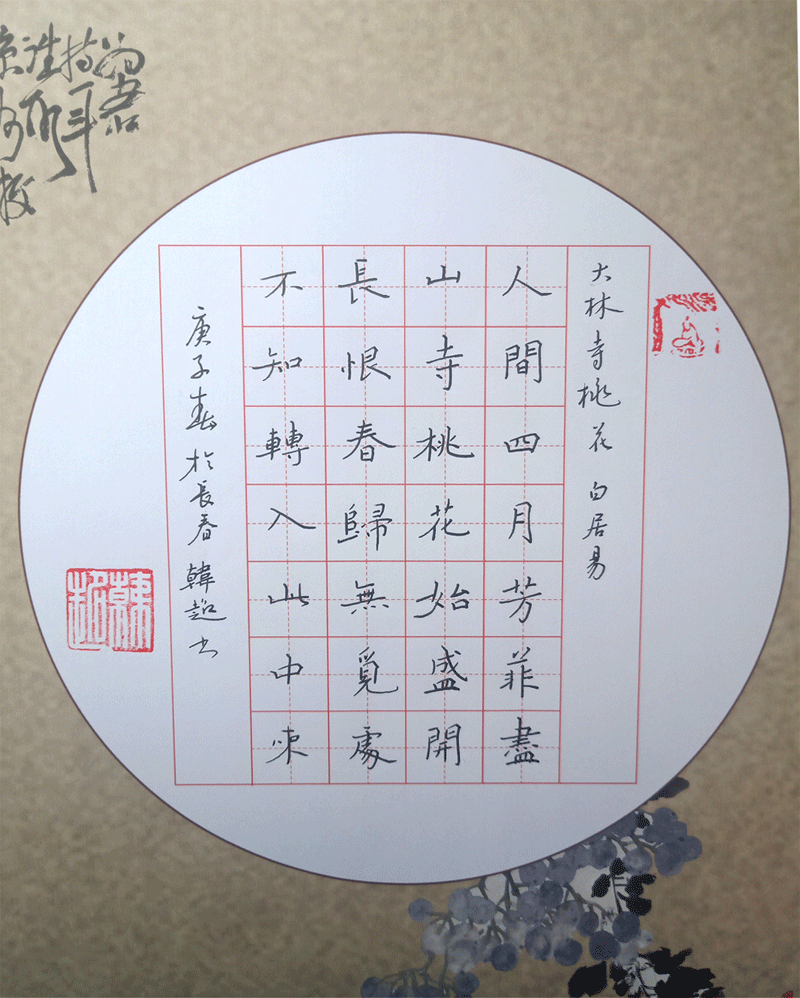 大林寺桃花 白居易
人間四月芳菲盡
山寺桃花始盛開
長恨春歸無覓處
不知轉入此中來
庚子春於長春 韓超书